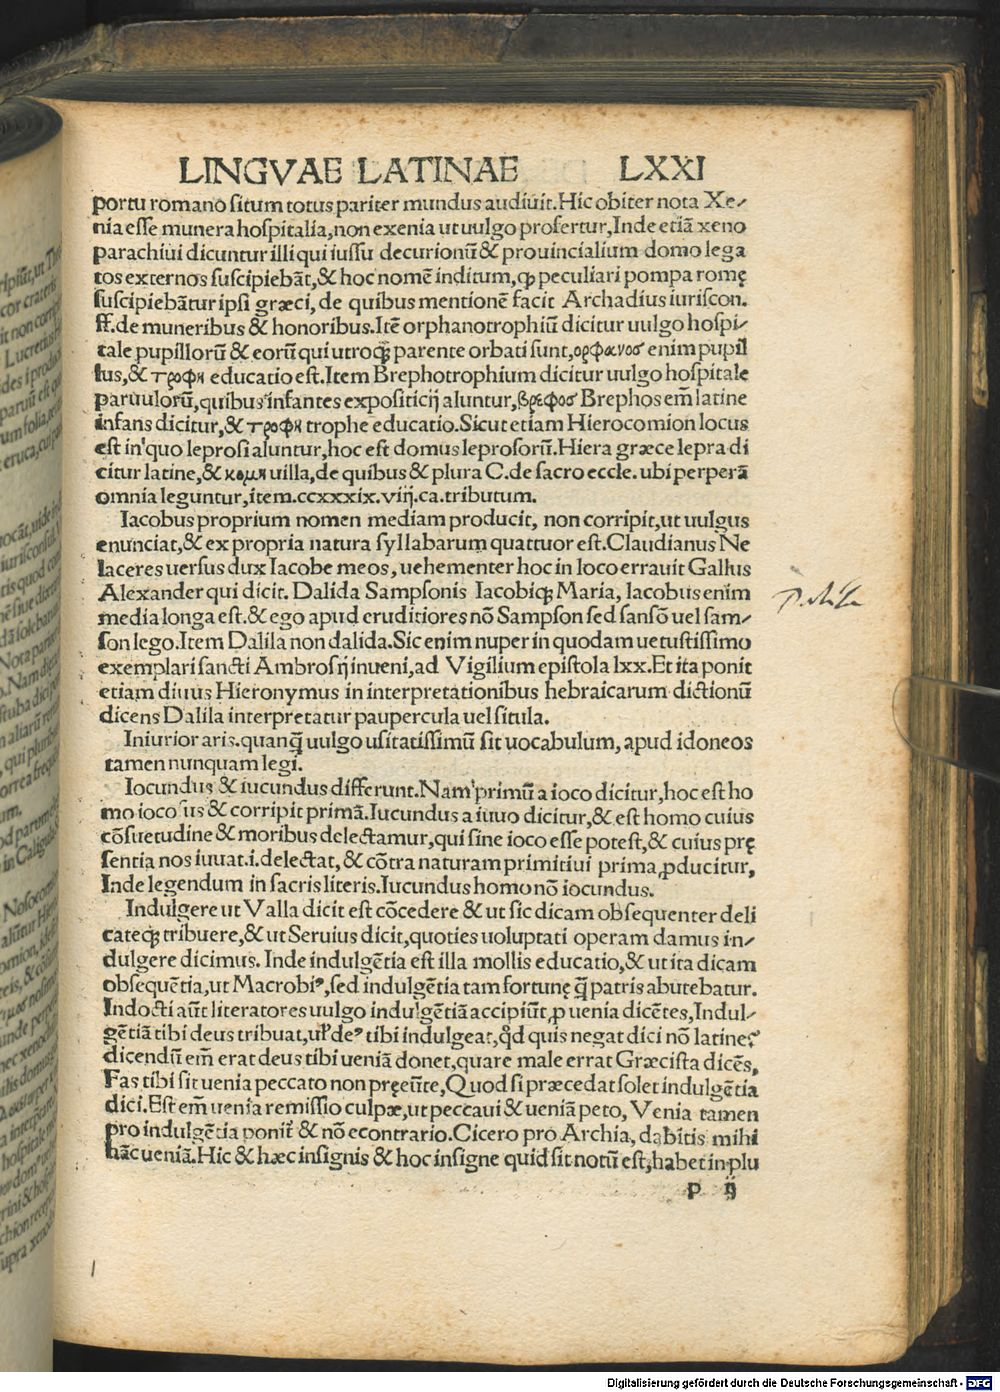 LINGVAE LATINAE LXXI
portu romano situm totus pariter mundus audiuit. Hic obiter nota Xe⸗
nia esse munera hospitalia, non exenia ut uulgo profertur, Inde etiã xeno
parachiui dicuntur illi qui iussu decurionũ & prouincialium domo lega
tos externos suscipiebãt, & hoc nomẽ inditum, ꝙ peculiari pompa romę
suscipiebãtur ipsi græci, de quibus mentionẽ facit Archadius iuriscon.
ff. de muneribus & honoribus. Itẽ orphanotrophiũ dicitur uulgo hospi⸗
tale pupillorũ & eorũ qui utroqꝫ parente orbati sunt, ορφανοσ enim pupil
lus, & τροφη educatio est. Item Brephotrophium dicitur uulgo hospitale
paruulorũ, quibus infantes expositicij aluntur, βρεφοσ Brephos em̃ latine
infans dicitur, & τροφη trophe educatio. Sicut etiam Hierocomion locus
est in quo leprosi aluntur, hoc est domus leprosorũ. Hiera græce lepra di
citur latine, & κομη uilla, de quibus & plura C. de sacro eccle. ubi perperã
omnia leguntur, item. ccxxxix. viij. ca. tributum.
Iacobus proprium nomen mediam producit, non corripit, ut uulgus
enunciat, & ex propria natura syllabarum quattuor est. Claudianus Ne
laceres uersus dux Iacobe meos, uehementer hoc in loco errauit Gallus
Alexander qui dicit. Dalida Sampsonis Iacobiqꝫ Maria, Iacobus enim
media longa est. & ego apud eruditiores nõ Sampson sed sansõ uel sam⸗
son lego. Item Dalila non dalida. Sic enim nuper in quodam uetustissimo
exemplari sancti Ambrosij inueni, ad Vigilium epistola lxx. Et ita ponit
etiam diuus Hieronymus in interpretationibus hebraicarum dictionũ
dicens Dalila interpretatur paupercula uel situla.
Iniurior aris. quanꝗ̃ uulgo usitatissimũ sit uocabulum, apud idoneos
tamen nunquam legi.
Iocundus & iucundus differunt. Nam primũ a ioco dicitur, hoc est ho
mo iocosus & corripit primã. Iucundus a iuuo dicitur, & est homo cuius
cõsuetudine & moribus delectamur, qui sine ioco esse potest, & cuius prę
sentia nos iuuat. i. delectat, & cõtra naturam primitiui prima, ꝓducitur,
Inde legendum in sacris literis. Iucundus homo nõ iocundus.
Indulgere ut Valla dicit est cõcedere & ut sic dicam obsequenter deli
cateqꝫ tribuere, & ut Seruius dicit, quoties uoluptati operam damus in⸗
dulgere dicimus. Inde indulgẽtia est illa mollis educatio, & ut ita dicam
obsequẽtia, ut Macrobiꝰ, sed indulgẽtia tam fortunę ꝗ̃ patris abutebatur.
Indocti aũt literatores uulgo indulgẽtiã accipiũt, ꝓ uenia dicẽtes, Indul⸗
gẽtiã tibi deus tribuat, ul̃ deꝰ tibi indulgeat, qd̃ quis negat dici nõ latine?
dicendũ em̃ erat deus tibi ueniã donet, quare male errat Græcista dicẽs,
Fas tibi sit uenia peccato non pręeũte, Quod si præcedat solet indulgẽtia
dici. Est em̃ uenia remissio culpæ, ut peccaui & ueniã peto, Venia tamen
pro indulgẽtia ponit̃ & nõ econtrario. Cicero pro Archia, dabitis mihi
hãc ueniã. Hic & hæc insignis & hoc insigne quid sit notũ est, habet in plu
p ij
Dalila
Digitalisierung gefördert durch die Deutsche Forschungsgemeinschaft - DFG